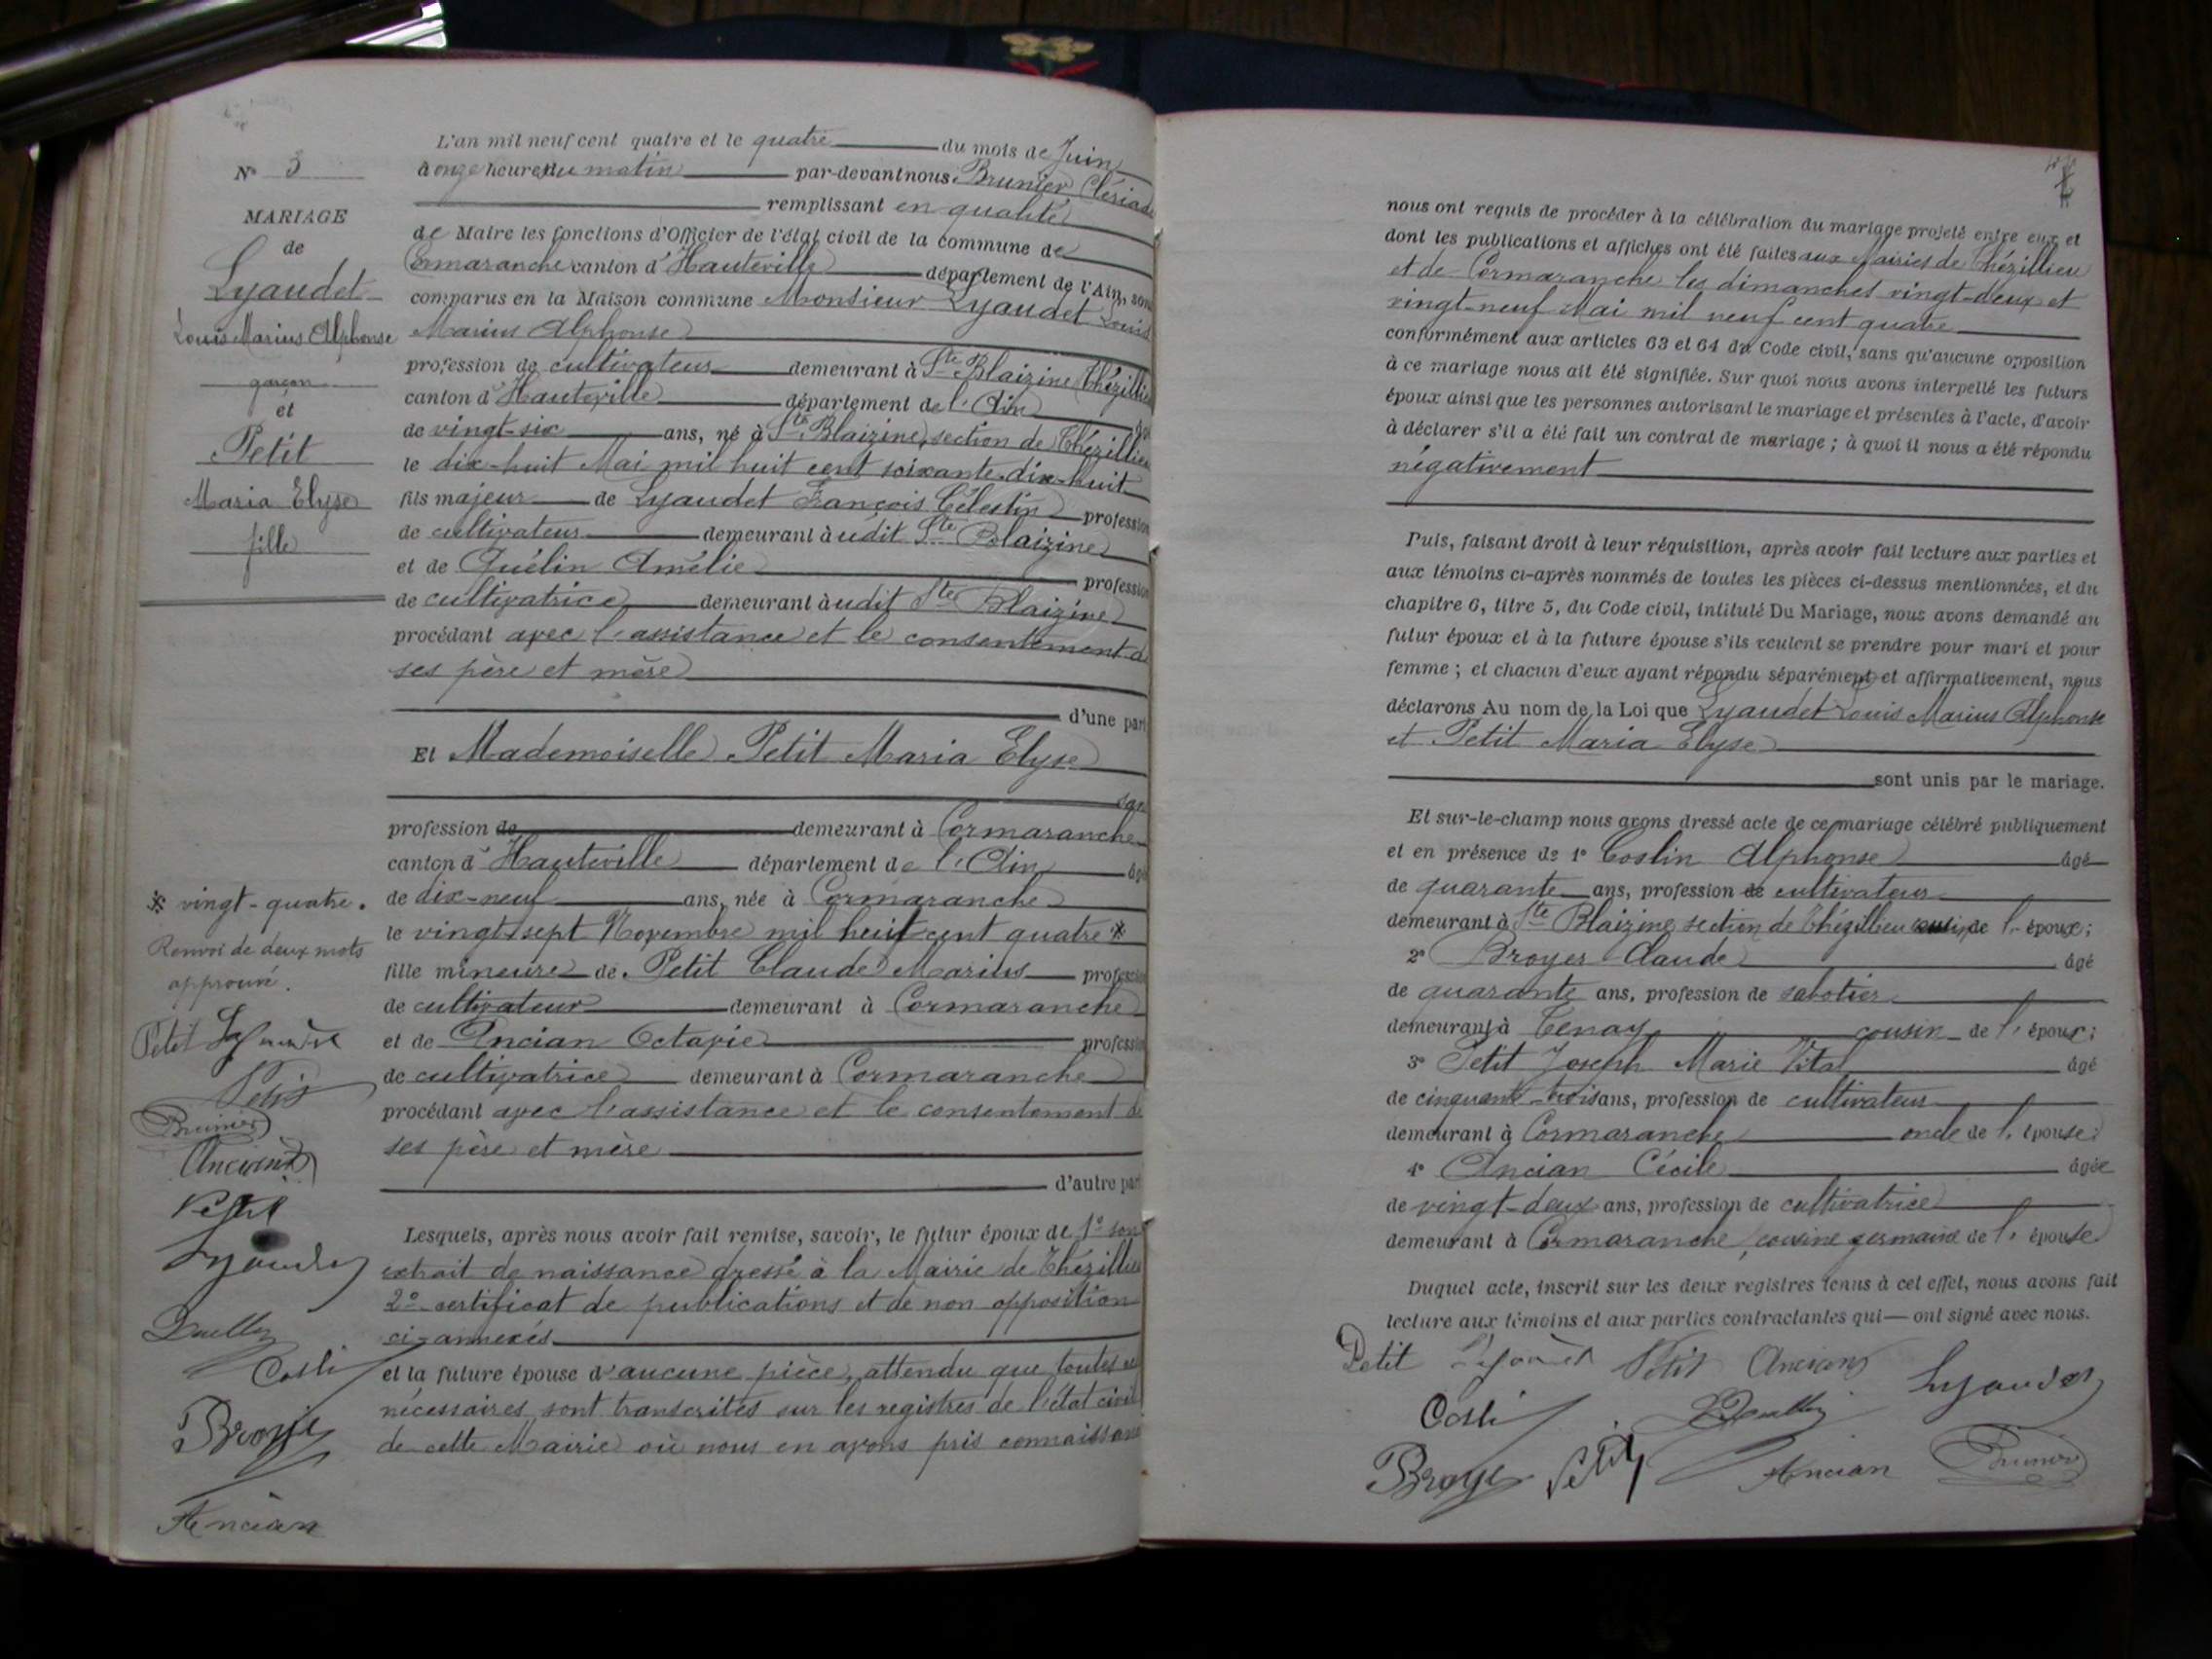 N° 3
MARIAGE
de
Lyaudet
Louis Marius Alphonse
garçon
et
Petit
Maria Elyse
fille
L'an mil neuf cent quatre et le quatre du mois de Juin
à onze heures du matin par-devant nous Brunier Clériade
remplissant en qualité
de Maire les fonctions d'Officier de l'état civil de la commune de
Cormaranche canton d'Hauteville département de l'Ain, sont
comparus en la Maison commune Monsieur Lyaudet Louis
Marius Alphonse
profession de cultivateur demeurant à Ste Blaizine Thézillieu
canton d'Hauteville département de l'Ain âgé
de vingt-six ans, né à Ste Blaizine, section de Thézillieu
le dix-huit Mai mil huit cent soixante-dix-huit
fils majeur de Lyaudet François Célestin profession
de cultivateur demeurant à udit Ste Blaizine
et de Quélin Amélie profession
de cultivatrice demeurant à udit Ste Blaizine
procédant avec l'assistance et le consentement de
ses père et mère
d'une part
Et Mademoiselle Petit Maria Elyse
sans
profession de demeurant à Cormaranche
canton d'Hauteville département de l'Ain âgé
de dix-neuf ans, née à Cormaranche
le vingt-sept Novembre mil huit cent quatre *
fille mineure de Petit Claude Marius profession
de cultivateur demeurant à Cormaranche
et de Ancian Octavie profession
de cultivatrice demeurant à Cormaranche
procédant avec l'assistance et le consentement de
ses père et mère
d'autre part
Lesquels, après nous avoir fait remise, savoir, le futur époux de 1° son
extrait de naissance dressé à la Mairie de Thézillieu
2° certificat de publications et de non opposition
ci-annexés
et la future épouse d'aucune pièce, attendu que toutes
nécessaires sont transcrites sur les registres de l'état civil
de cette Mairie où nous en avons pris connaissance
* vingt-quatre.
Renvoi de deux mots
approuvé.
Petit Lyaudet
Petit
Brunier
Ancian
Petit
Lyaudet
Costi
Broye
Ancian
nous ont requis de procéder à la célébration du mariage projeté entre eux et
dont les publications et affiches ont été faites aux Mairies de Thézillieu
et de Cormaranche les dimanches vingt-deux et
vingt-neuf Mai mil neuf cent quatre
conformément aux articles 63 et 64 du Code civil, sans qu'aucune opposition
à ce mariage nous ait été signifiée. Sur quoi nous avons interpellé les futurs
époux ainsi que les personnes autorisant le mariage et présentes à l'acte, d'avoir
à déclarer s'il a été fait un contrat de mariage ; à quoi il nous a été répondu
négativement
Puis, faisant droit à leur réquisition, après avoir fait lecture aux parties et
aux témoins ci-après nommés de toutes les pièces ci-dessus mentionnées, et du
chapitre 6, titre 5, du Code civil, intitulé Du Mariage, nous avons demandé au
futur époux et à la future épouse s'ils veulent se prendre pour mari et pour
femme ; et chacun d'eux ayant répondu séparément et affirmativement, nous
déclarons Au nom de la Loi que Lyaudet Louis Marius Alphonse
et Petit Maria Elyse
sont unis par le mariage.
Et sur-le-champ nous avons dressé acte de ce mariage célébré publiquement
et en présence de 1° Costin Alphonse âgé
de quarante ans, profession de cultivateur
demeurant à Ste Blaizine section de Thézillieu cousin de l'époux ;
2° Broyer Claude âgé
de quarante ans, profession de sabotier
demeurant à Tenay cousin de l'époux ;
3° Petit Joseph Marie Vital âgé
de cinquante-trois ans, profession de cultivateur
demeurant à Cormaranche oncle de l'épouse ;
4° Ancian Cécile âgée
de vingt-deux ans, profession de cultivatrice
demeurant à Cormaranche, cousine germaine de l'épouse
Duquel acte, inscrit sur les deux registres tenus à cet effet, nous avons fait
lecture aux témoins et aux parties contractantes qui ont signé avec nous.
Petit Lyaudet Petit Ancian Lyaudet
Costi
Broye Petit Ancian Brunier